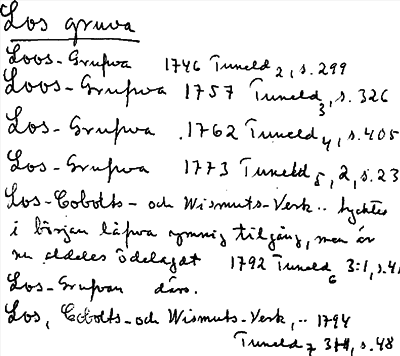 Los gruva
Loos-Grufwa 1746 Tuneld 2, s. 299
Loos-Grufwa 1757 Tuneld 3, s. 326
Los-Grufwa 1762 Tuneld 4, s. 405
Los-Grufwa 1773 Tuneld 5, 2, s. 23
Los-Cobolts- och Wismuts-Verk .. tycktes
i början låfwa ymnig tilgång, men är
nu aldeles ödelagat 1792 Tuneld 6 3:1, s. 4
Los-Grufvan därs.
Los, Cobolts-och Wismuts-Verk, .. 1794
Tuneld 7 3, s. 48